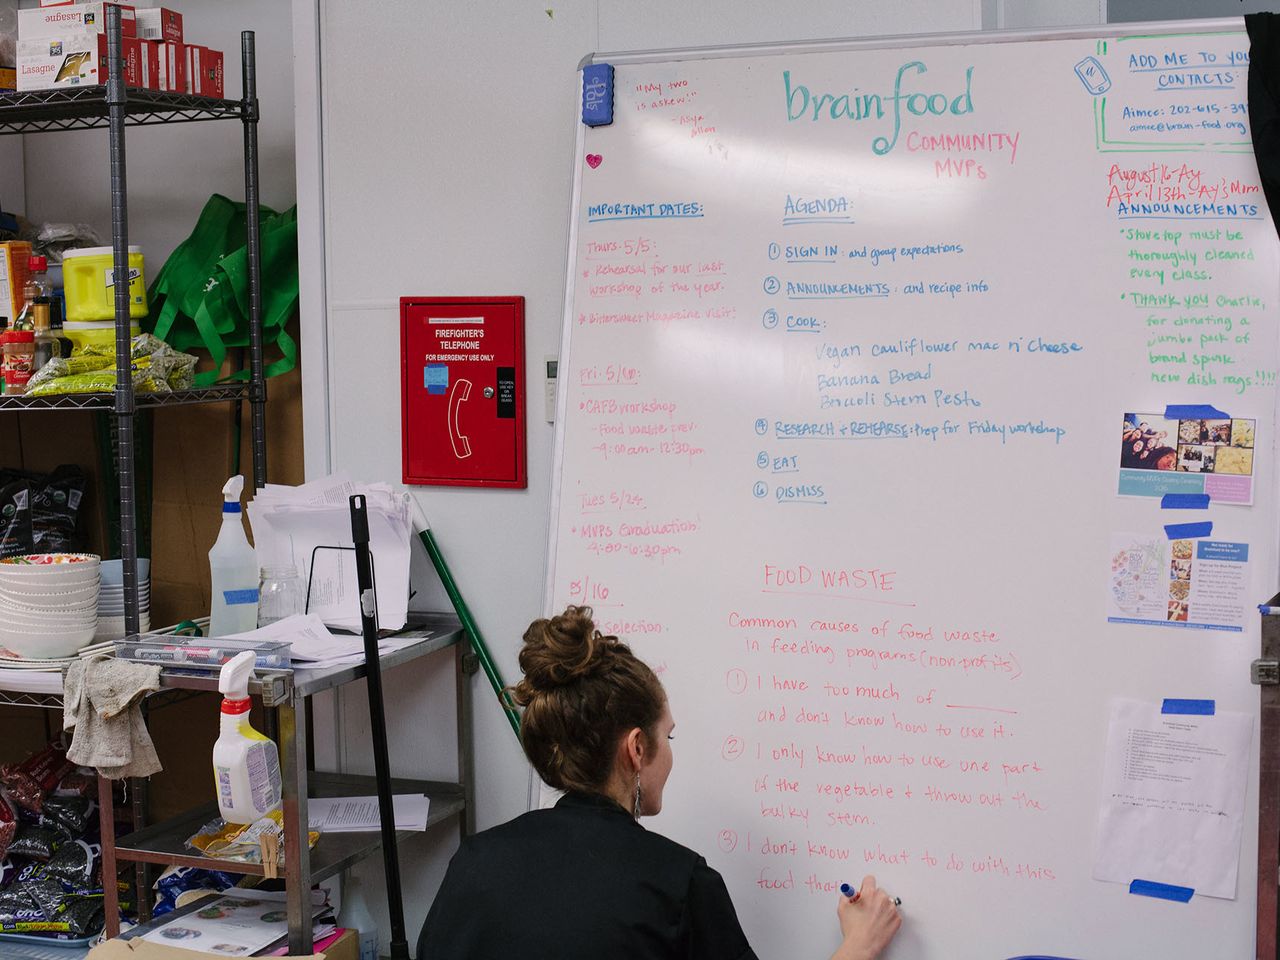 Lasagne
Lasagne
"My two
is askew!"
brainfood
COMMUNITY
MVPs
ADD ME TO YOU
CONTACTS:
Aimee: 202-615-39
aimee@brain-food.org
August 16-Ay
April 13th-Ay's Mom
ANNOUNCEMENTS
*Stovetop must be
thoroughly cleaned
every class.
*THANK YOU Charlie,
for donating a
jumbo pack of
brand spunk
new dish rags!!!!
IMPORTANT DATES:
Thurs. 5/5:
* Rehearsal for our last
workshop of the year.
* Bittersweet Magazine Visit!
Fri. 5/6:
* CAFB Workshop
- Food waste prev.
- 9:00am - 12:30pm
Tues 5/24
* MVPs Graduation!
5/16
Selection.
AGENDA:
① SIGN IN: and group expectations
② ANNOUNCEMENTS: and recipe info
③ COOK:
Vegan cauliflower mac n' cheese
Banana Bread
Broccoli Stem Pesto
④ RESEARCH & REHEARSE: Prep for Friday workshop
⑤ EAT
⑥ DISMISS
FOOD WASTE
Common causes of food waste
in feeding programs (non-profits)
① I have too much of ______
and don't know how to use it.
② I only know how to use one part
of the vegetable & throw out the
bulky stem.
③ I don't know what to do with this
food that
FIREFIGHTER'S
TELEPHONE
FOR EMERGENCY USE ONLY